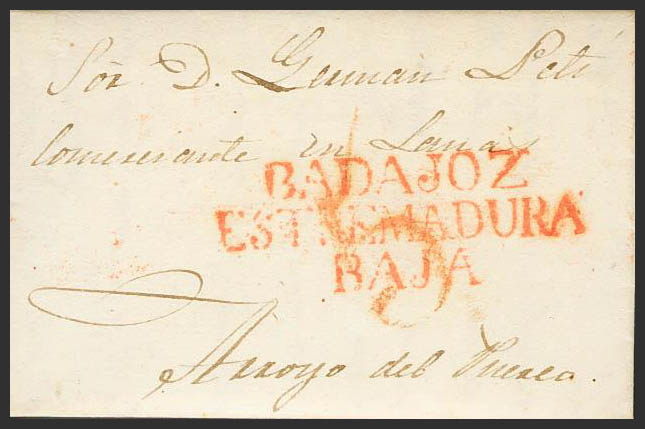 Sor D. German Petit
Comerciante en Lanas
BADAJOZ
ESTREMADURA
BAJA
Arroyo del Puerco.